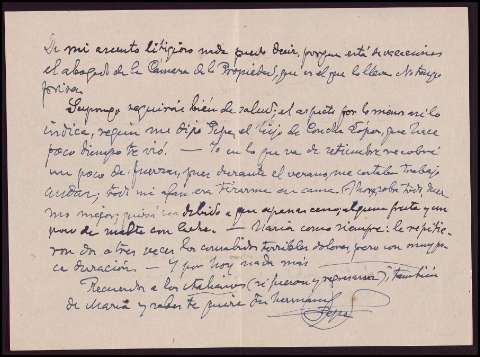 De mi asunto litigioso nada puedo decir, porque está de vacaciones
el abogado de la Cámara de la Propiedad, que es el que lo lleva. No tengo
prisa.
Supongo seguirás bién de salud; el aspecto por lo menos así lo
indica, según me dijo Pepe, el hijo de Concha López, que hace
poco tiempo te vió. — Yo en lo que va de setiembre recobré
un poco de fuerzas, pues durante el verano me costaba trabajo
andar; todo mi afán era tirarme en cama. Ahora, sobre todo duer
mo mejor, quizá sea debido a que apenas ceno, alguna fruta y un
poco de malta con leche. — María como siempre: le repitie-
ron dos o tres veces los consabidos terribles dolores, pero con muy po-
ca duración. — Y por hoy nada más
Recuerdos a los (si fueron y regresaron), también
de María y sabes te quiere tu hermano
Pepe